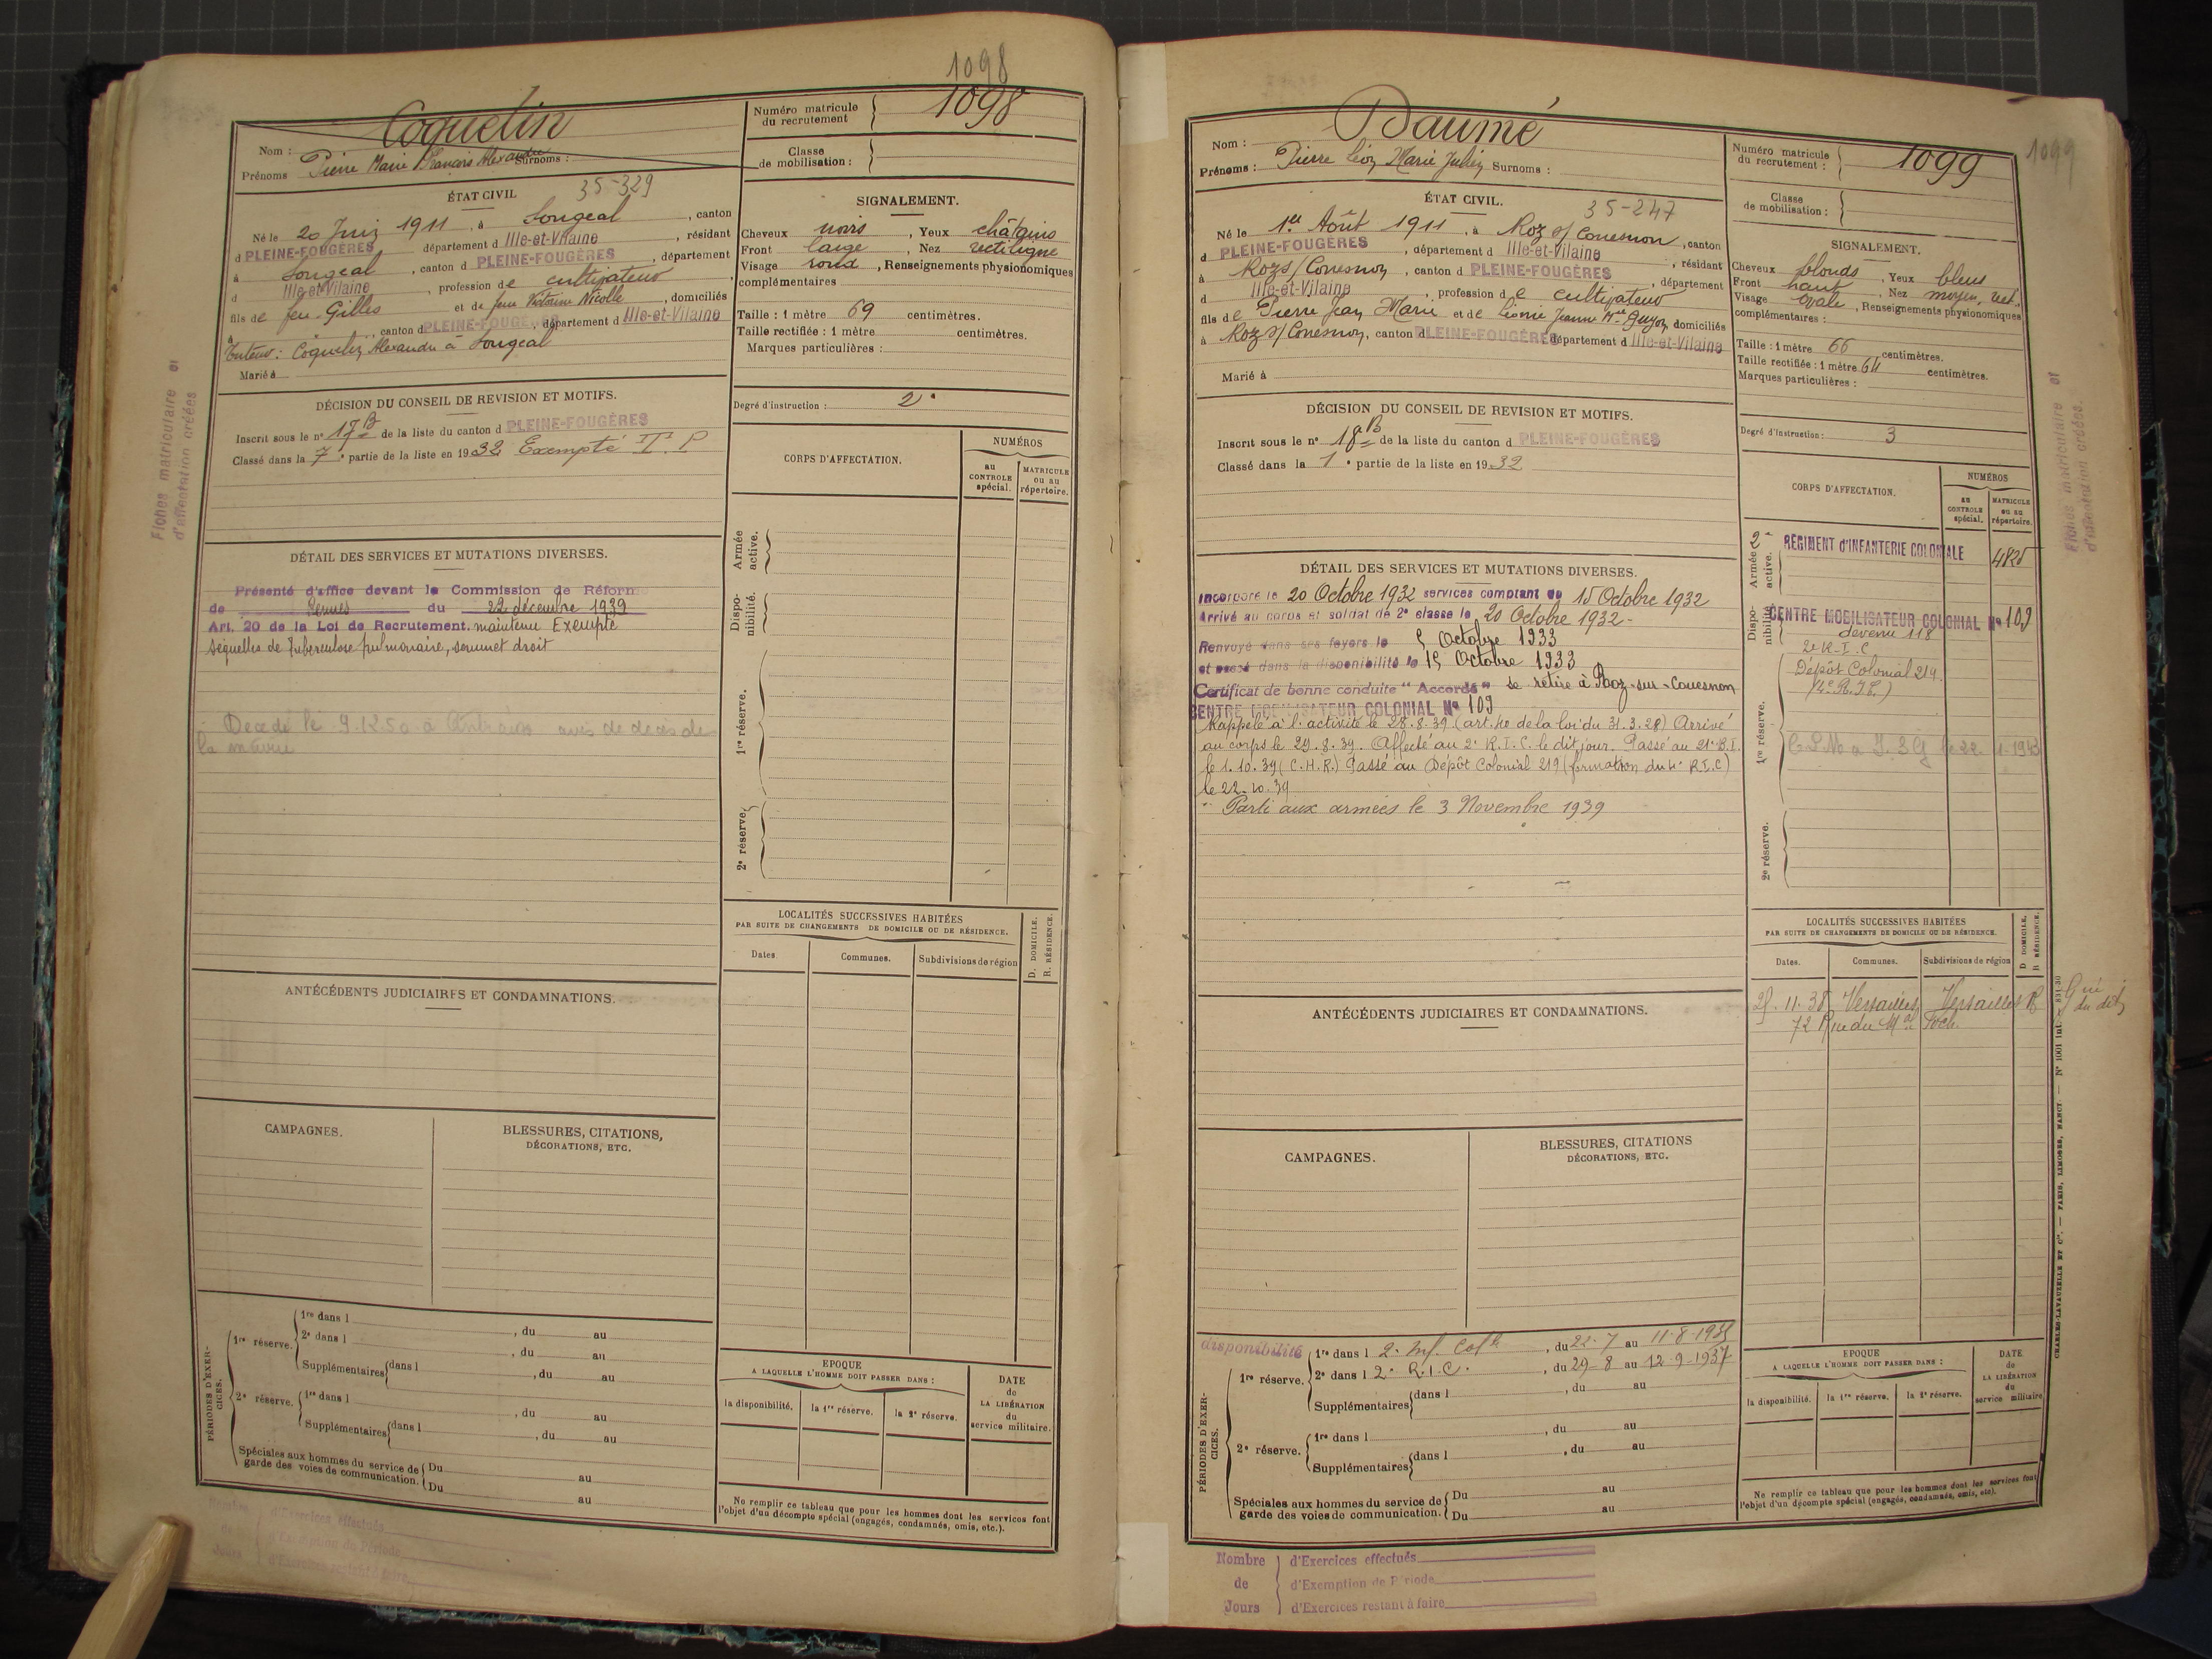 1098
Coquelin
Nom :
Prénoms Pierre Marie François Alexandre Surnoms :
Numéro matricule du recrutement 1098
Classe de mobilisation :
ÉTAT CIVIL
35-329
Né le 20 Juin 1911, à Sougeal, canton
d PLEINE-FOUGÈRES département d Ille-et-Vilaine, résidant
à Sougeal, canton d PLEINE-FOUGÈRES, département
d Ille-et-Vilaine, profession de cultivateur
fils de feu Gilles et de feue Victorine Nicolle, domiciliés
à , canton d PLEINE-FOUGÈRES, département d Ille-et-Vilaine
Tuteur : Coquelin Alexandre à Sougeal
Marié à
SIGNALEMENT.
Cheveux noirs, Yeux châtains
Front large, Nez rectiligne
Visage rond, Renseignements physionomiques
complémentaires :
Taille : 1 mètre 69 centimètres.
Taille rectifiée : 1 mètre centimètres.
Marques particulières :
Degré d'instruction : 2
DÉCISION DU CONSEIL DE REVISION ET MOTIFS.
Inscrit sous le n° 17 B de la liste du canton d PLEINE-FOUGÈRES
Classé dans la 7e partie de la liste en 1932 Exempté T. P
CORPS D'AFFECTATION.
NUMÉROS
au CONTROLE spécial.
MATRICULE ou au répertoire.
Armée active.
Disponibilité.
1re réserve.
2e réserve.
DÉTAIL DES SERVICES ET MUTATIONS DIVERSES.
Présenté d'office devant la Commission de Réform
de Rennes du 22 décembre 1939
Art. 20 de la Loi de Recrutement. maintenu Exempté
séquelles de Tuberculose pulmonaire, sommet droit
Décédé le 9.12.50 à Antrain avis de décès de
la mairie
LOCALITÉS SUCCESSIVES HABITÉES
PAR SUITE DE CHANGEMENTS DE DOMICILE OU DE RÉSIDENCE.
D. DOMICILE.
R. RÉSIDENCE.
Dates. Communes. Subdivisions de région
ANTÉCÉDENTS JUDICIAIRES ET CONDAMNATIONS.
CAMPAGNES.
BLESSURES, CITATIONS,
DÉCORATIONS, ETC.
PÉRIODES D'EXERCICES.
1re réserve. 1re dans l , du au
2e dans l , du au
Supplémentaires dans l , du au
2e réserve. 1re dans l , du au
Supplémentaires dans l , du au
Spéciales aux hommes du service de garde des voies de communication. Du au
Du au
EPOQUE
A LAQUELLE L'HOMME DOIT PASSER DANS :
la disponibilité. la 1re réserve. la 2e réserve.
DATE de LA LIBÉRATION du service militaire.
Ne remplir ce tableau que pour les hommes dont les services font
l'objet d'un décompte spécial (engagés, condamnés, omis, etc.).
Nombre de Jours
d'Exercices effectués
d'Exemption de Période
d'Exercices restant à faire
Fiches matriculaire et
d'affectation créées
1099
Baumé
Nom :
Prénoms : Pierre Léon Marie Julien Surnoms :
Numéro matricule du recrutement : 1099
Classe de mobilisation :
ÉTAT CIVIL.
35-247
Né le 1er Août 1911, à Roz s/ Couesnon, canton
d PLEINE-FOUGÈRES, département d Ille-et-Vilaine, résidant
à Roz s/ Couesnon, canton d PLEINE-FOUGÈRES, département
d Ille-et-Vilaine, profession de cultivateur
fils de Pierre Jean Marie et de Léonie Jeanne Mie Guyon, domiciliés
à Roz s/ Couesnon, canton d PLEINE-FOUGÈRES département d Ille-et-Vilaine
Marié à
SIGNALEMENT.
Cheveux blonds, Yeux bleus
Front haut, Nez moyen, rect.
Visage ovale, Renseignements physionomiques
complémentaires :
Taille : 1 mètre 66 centimètres.
Taille rectifiée : 1 mètre 64 centimètres.
Marques particulières :
Degré d'instruction : 3
DÉCISION DU CONSEIL DE REVISION ET MOTIFS.
Inscrit sous le n° 18 B de la liste du canton d PLEINE-FOUGÈRES
Classé dans la 1e partie de la liste en 1932
CORPS D'AFFECTATION.
NUMÉROS
au CONTROLE spécial.
MATRICULE ou au répertoire.
Armée active. 2e RÉGIMENT d'INFANTERIE COLONIALE 4825
Disponibilité. CENTRE MOBILISATEUR COLONIAL N° 109
devenu 118
2e R.I.C
1re réserve. Dépôt Colonial 219
(4e R.I.C.)
2e réserve.
DÉTAIL DES SERVICES ET MUTATIONS DIVERSES.
Incorporé le 20 Octobre 1932 services comptant du 15 Octobre 1932
Arrivé au corps et soldat de 2e classe le 20 Octobre 1932 -
Renvoyé dans ses foyers le 5 Octobre 1933
et passé dans la disponibilité le 15 Octobre 1933
Certificat de bonne conduite "Accordé" se retire à Roz-sur-Couesnon
CENTRE MOBILISATEUR COLONIAL N° 109
Rappelé à l'activité le 28.8.39 (art. 40 de la loi du 31.3.28) Arrivé
au corps le 29.8.39. Affecté au 2e R.I.C. le dit jour. Passé au 21e B.I.
le 1.10.39 (C.H.R.) Passé au Dépôt Colonial 219 (formation du 4e R.I.C)
le 22.10.39
Parti aux armées le 3 Novembre 1939
LOCALITÉS SUCCESSIVES HABITÉES
PAR SUITE DE CHANGEMENTS DE DOMICILE OU DE RÉSIDENCE.
D DOMICILE.
R RÉSIDENCE.
Dates. Communes. Subdivisions de région
25.11.38 Versailles Versailles R
72 Rue du Mal Foch.
du dit
ANTÉCÉDENTS JUDICIAIRES ET CONDAMNATIONS.
CAMPAGNES.
BLESSURES, CITATIONS
DÉCORATIONS, ETC.
PÉRIODES D'EXERCICES.
disponibilité 1re dans l 2e Inf. Colle, du 22-7 au 11-8-1935
1re réserve. 2e dans l 2e R.I.C., du 29-8 au 12-9-1937
Supplémentaires dans l , du au
2e réserve. 1re dans l , du au
Supplémentaires dans l , du au
Spéciales aux hommes du service de garde des voies de communication. Du au
Du au
EPOQUE
A LAQUELLE L'HOMME DOIT PASSER DANS :
la disponibilité. la 1re réserve. la 2e réserve.
DATE de LA LIBÉRATION du service militaire
Ne remplir ce tableau que pour les hommes dont les services font
l'objet d'un décompte spécial (engagés, condamnés, omis, etc).
Nombre de Jours
d'Exercices effectués
d'Exemption de Période
d'Exercices restant à faire
Fiches matriculaire et
d'affectation créées.
CHARLES-LAVAUZELLE ET Cie. — PARIS, LIMOGES, NANCY — N° 1001 831-30
1099